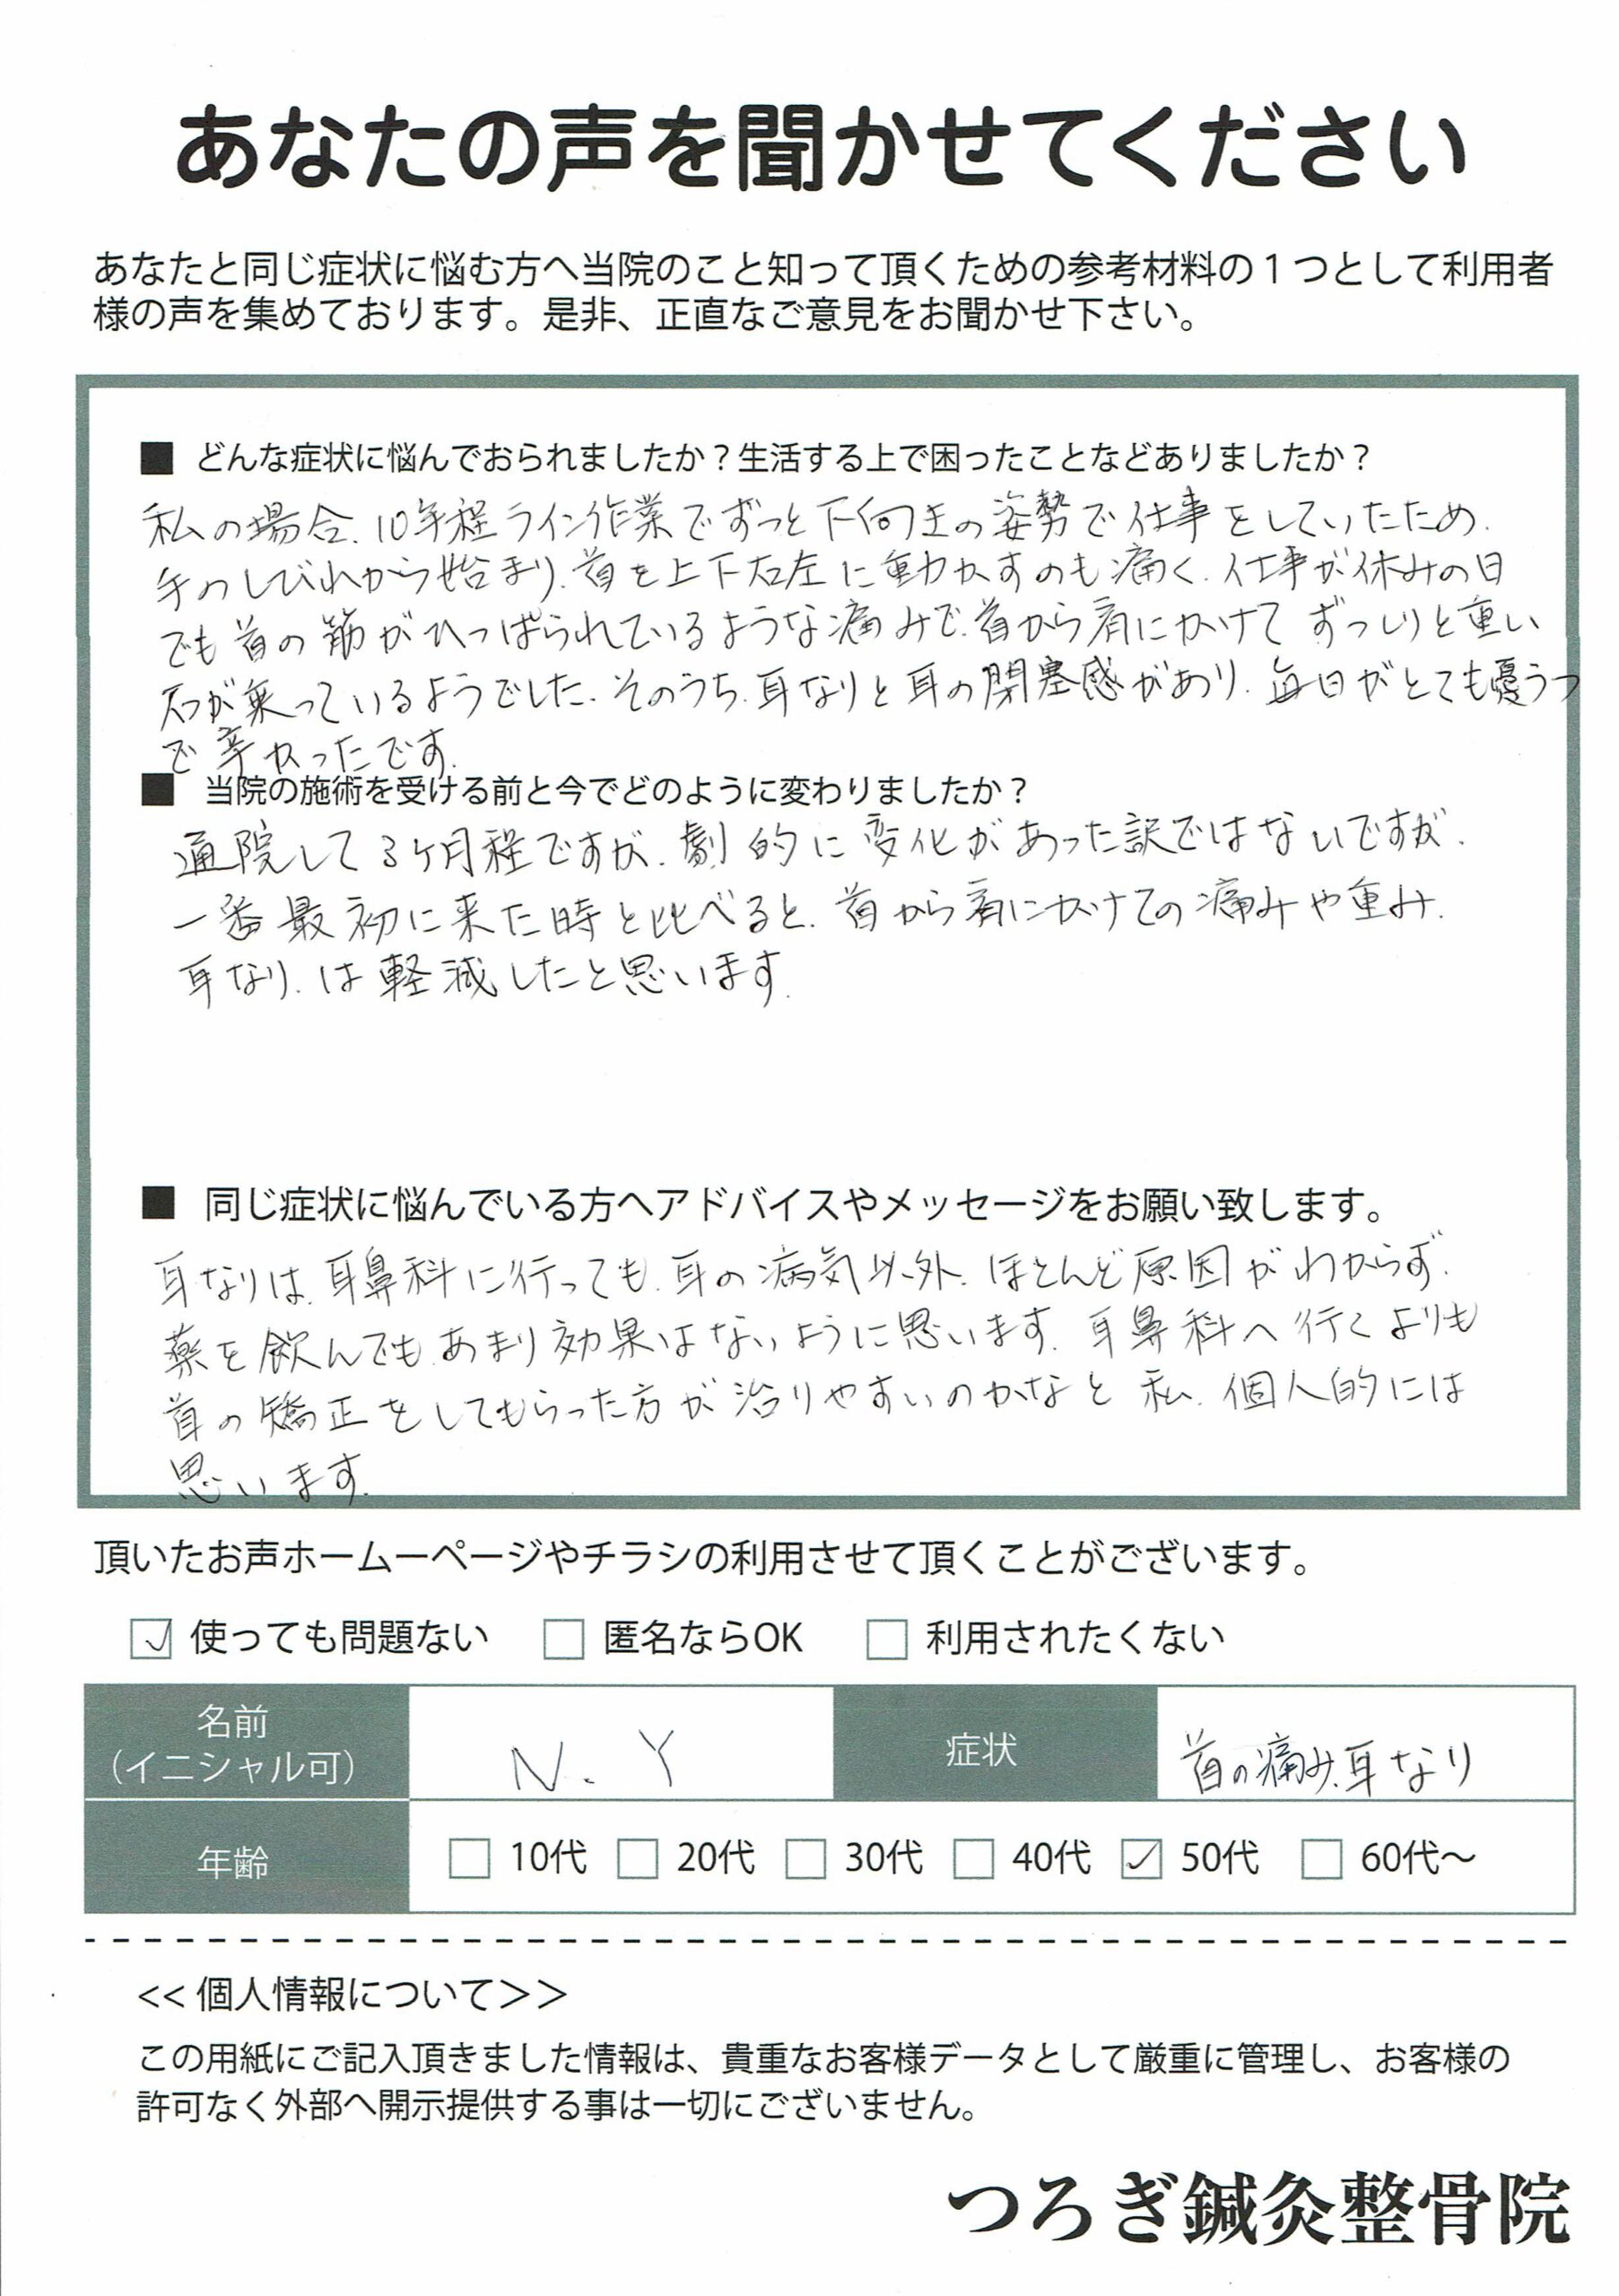 あなたの声を聞かせてください
あなたと同じ症状に悩む方へ当院のこと知って頂くための参考材料の1つとして利用者
様の声を集めております。是非、正直なご意見をお聞かせ下さい。
■ どんな症状に悩んでおられましたか？生活する上で困ったことなどありましたか？
私の場合、10年程ライン作業でずっと下向きの姿勢で仕事をしていたため、
手のしびれから始まり、首を上下右左に動かすのも痛く、仕事が休みの日
でも首の筋がひっぱられているような痛みで、首から肩にかけてずっしりと重い
石が乗っているようでした。そのうち、耳なりと耳の閉塞感があり、毎日がとても憂うつ
で辛かったです。
■ 当院の施術を受ける前と今でどのように変わりましたか？
通院して3ヶ月程ですが、劇的に変化があった訳ではないですが、
一番最初に来た時と比べると、首から肩にかけての痛みや重み、
耳なり、は軽減したと思います。
■ 同じ症状に悩んでいる方へアドバイスやメッセージをお願い致します。
耳なりは、耳鼻科に行っても、耳の病気以外、ほとんど原因がわからず、
薬を飲んでも、あまり効果はないように思います。耳鼻科へ行くよりも
首の矯正をしてもらった方が治りやすいのかなと私、個人的には
思います。
頂いたお声ホームーページやチラシの利用させて頂くことがございます。
☑ 使っても問題ない □ 匿名ならOK □ 利用されたくない
名前
（イニシャル可） N.Y 症状 首の痛み、耳なり
年齢 □ 10代 □ 20代 □ 30代 □ 40代 ☑ 50代 □ 60代～
<< 個人情報について＞＞
この用紙にご記入頂きました情報は、貴重なお客様データとして厳重に管理し、お客様の
許可なく外部へ開示提供する事は一切にございません。
つろぎ鍼灸整骨院